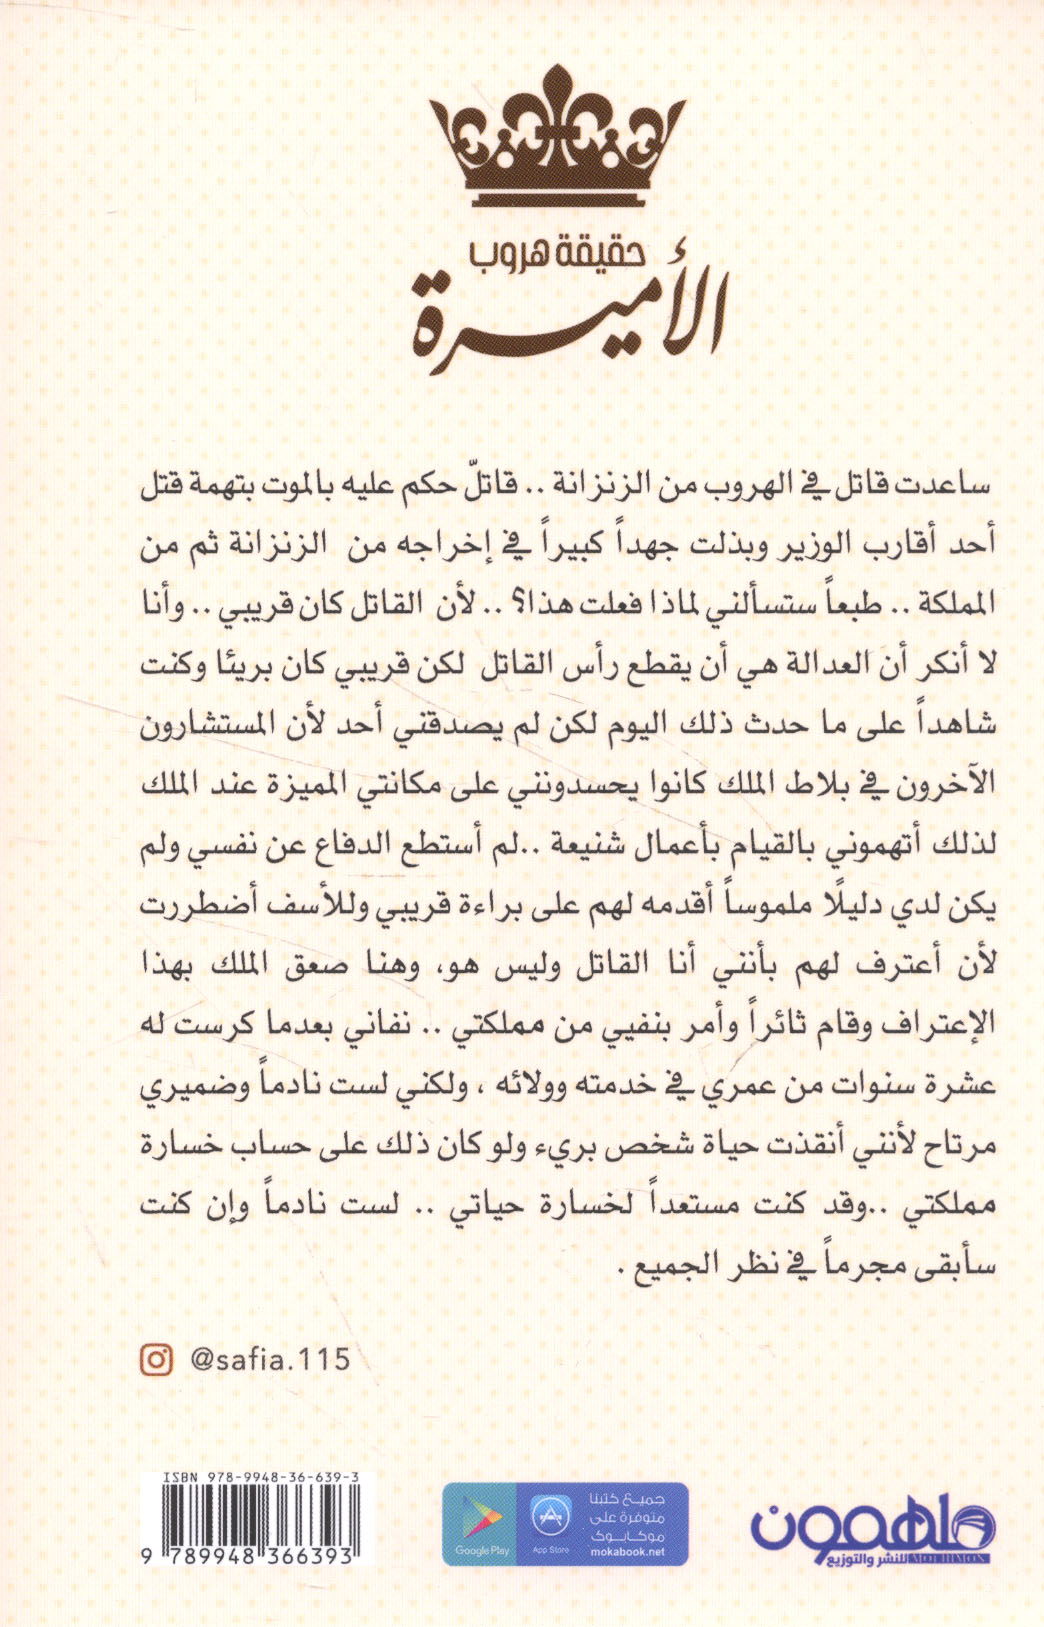 حقيقة هروب
الأميرة
ساعدت قاتل في الهروب من الزنزانة .. قاتلّ حكم عليه بالموت بتهمة قتل
أحد أقارب الوزير وبذلت جهداً كبيراً في إخراجه من الزنزانة ثم من
المملكة .. طبعاً ستسألني لماذا فعلت هذا؟ .. لأن القاتل كان قريبي .. وأنا
لا أنكر أن العدالة هي أن يقطع رأس القاتل لكن قريبي كان بريئا وكنت
شاهداً على ما حدث ذلك اليوم لكن لم يصدقني أحد لأن المستشارون
الآخرون في بلاط الملك كانوا يحسدونني على مكانتي المميزة عند الملك
لذلك أتهموني بالقيام بأعمال شنيعة ..لم أستطع الدفاع عن نفسي ولم
يكن لدي دليلًا ملموساً أقدمه لهم على براءة قريبي وللأسف أضطررت
لأن أعترف لهم بأنني أنا القاتل وليس هو، وهنا صعق الملك بهذا
الإعتراف وقام ثائراً وأمر بنفيي من مملكتي .. نفاني بعدما كرست له
عشرة سنوات من عمري في خدمته وولائه ، ولكني لست نادماً وضميري
مرتاح لأنني أنقذت حياة شخص بريء ولو كان ذلك على حساب خسارة
مملكتي ..وقد كنت مستعداً لخسارة حياتي .. لست نادماً وإن كنت
سأبقى مجرماً في نظر الجميع .
@safia.115
ISBN 978-9948-36-639-3
9 789948 366393
Google Play
App Store
جميع كتبنا
متوفرة على
موكابوك
mokabook.net
ملهمون
للنشر والتوزيع MOLHIMON